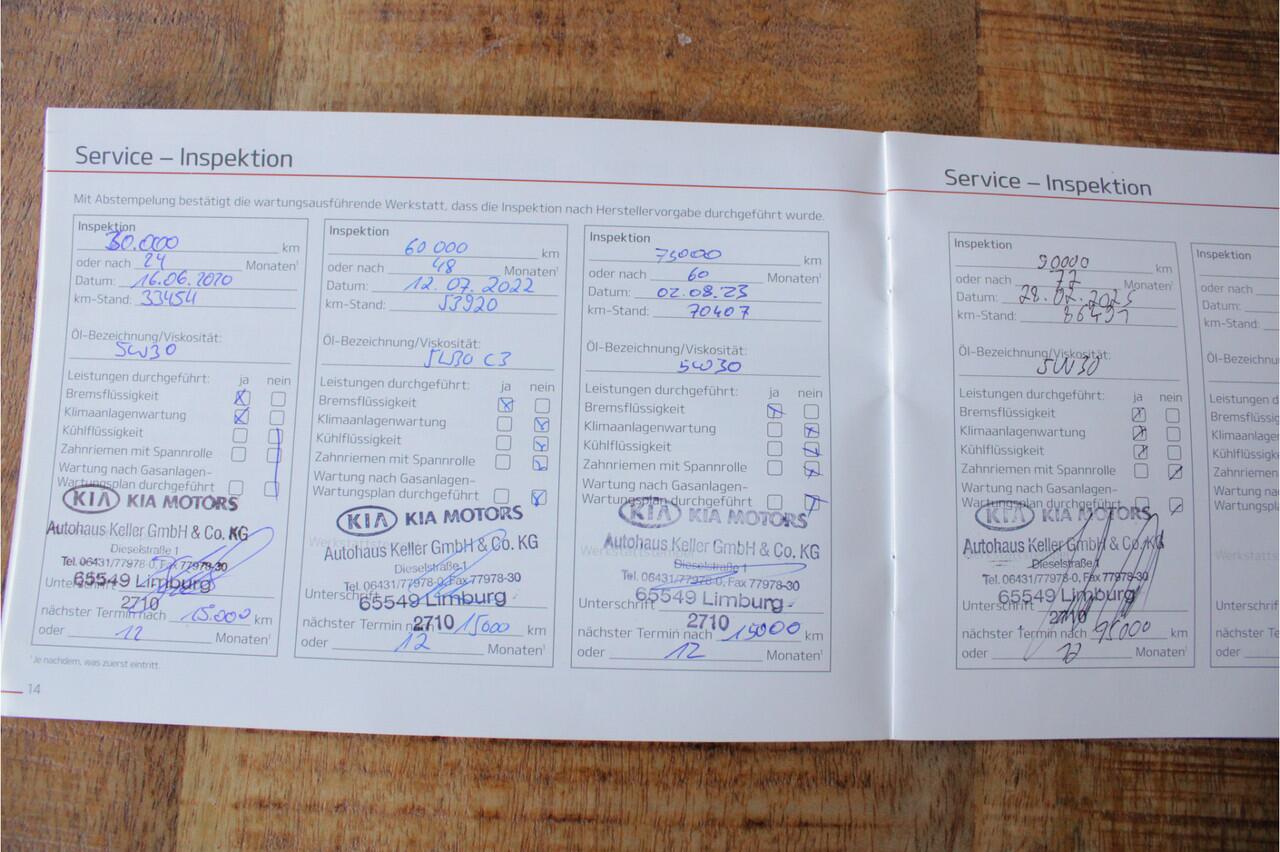 Service – Inspektion
Mit Abstempelung bestätigt die wartungsausführende Werkstatt, dass die Inspektion nach Herstellervorgabe durchgeführt wurde.
Inspektion
30.000 km
oder nach 24 Monaten¹
Datum: 16.06.2020
km-Stand: 33454
Öl-Bezeichnung/Viskosität:
5W30
Leistungen durchgeführt: ja nein
Bremsflüssigkeit
Klimaanlagenwartung
Kühlflüssigkeit
Zahnriemen mit Spannrolle
Wartung nach Gasanlagen-
Wartungsplan durchgeführt
KIA KIA MOTORS
Autohaus Keller GmbH & Co. KG
Dieselstraße 1
Tel. 06431/77978-0, Fax 77978-30
65549 Limburg
Unterschrift
2710
nächster Termin nach 15.000 km
oder 12 Monaten¹
¹Je nachdem, was zuerst eintritt.
14
Inspektion
60 000 km
oder nach 48 Monaten¹
Datum: 12.07.2022
km-Stand: 53920
Öl-Bezeichnung/Viskosität:
5W30 C3
Leistungen durchgeführt: ja nein
Bremsflüssigkeit
Klimaanlagenwartung
Kühlflüssigkeit
Zahnriemen mit Spannrolle
Wartung nach Gasanlagen-
Wartungsplan durchgeführt
KIA KIA MOTORS
Autohaus Keller GmbH & Co. KG
Dieselstraße 1
Tel. 06431/77978-0, Fax 77978-30
Unterschrift
65549 Limburg
2710
nächster Termin nach 15000 km
oder 12 Monaten¹
Inspektion
75000 km
oder nach 60 Monaten¹
Datum: 02.08.23
km-Stand: 70407
Öl-Bezeichnung/Viskosität:
5W30
Leistungen durchgeführt: ja nein
Bremsflüssigkeit
Klimaanlagenwartung
Kühlflüssigkeit
Zahnriemen mit Spannrolle
Wartung nach Gasanlagen-
Wartungsplan durchgeführt
KIA KIA MOTORS
Autohaus Keller GmbH & Co. KG
Dieselstraße 1
Tel. 06431/77978-0, Fax 77978-30
65549 Limburg
Unterschrift
2710
nächster Termin nach 15000 km
oder 12 Monaten¹
Service – Inspektion
Inspektion
90000 km
oder nach Monaten¹
Datum:
km-Stand: 86491
Öl-Bezeichnung/Viskosität:
5W30
Leistungen durchgeführt: ja nein
Bremsflüssigkeit
Klimaanlagenwartung
Kühlflüssigkeit
Zahnriemen mit Spannrolle
Wartung nach Gasanlagen-
Wartungsplan durchgeführt
KIA KIA MOTORS
Autohaus Keller GmbH & Co. KG
Dieselstraße 1
Tel. 06431/77978-0, Fax 77978-30
65549 Limburg
Unterschrift
2710
nächster Termin nach km
oder 12 Monaten¹
Inspektion
oder nach
Datum:
km-Stand:
Öl-Bezeichnung
Leistungen d
Bremsflüssig
Klimaanlagen
Kühlflüssigke
Zahnriemen
Wartung na
Wartungspl
Unterschrif
nächster Te
oder